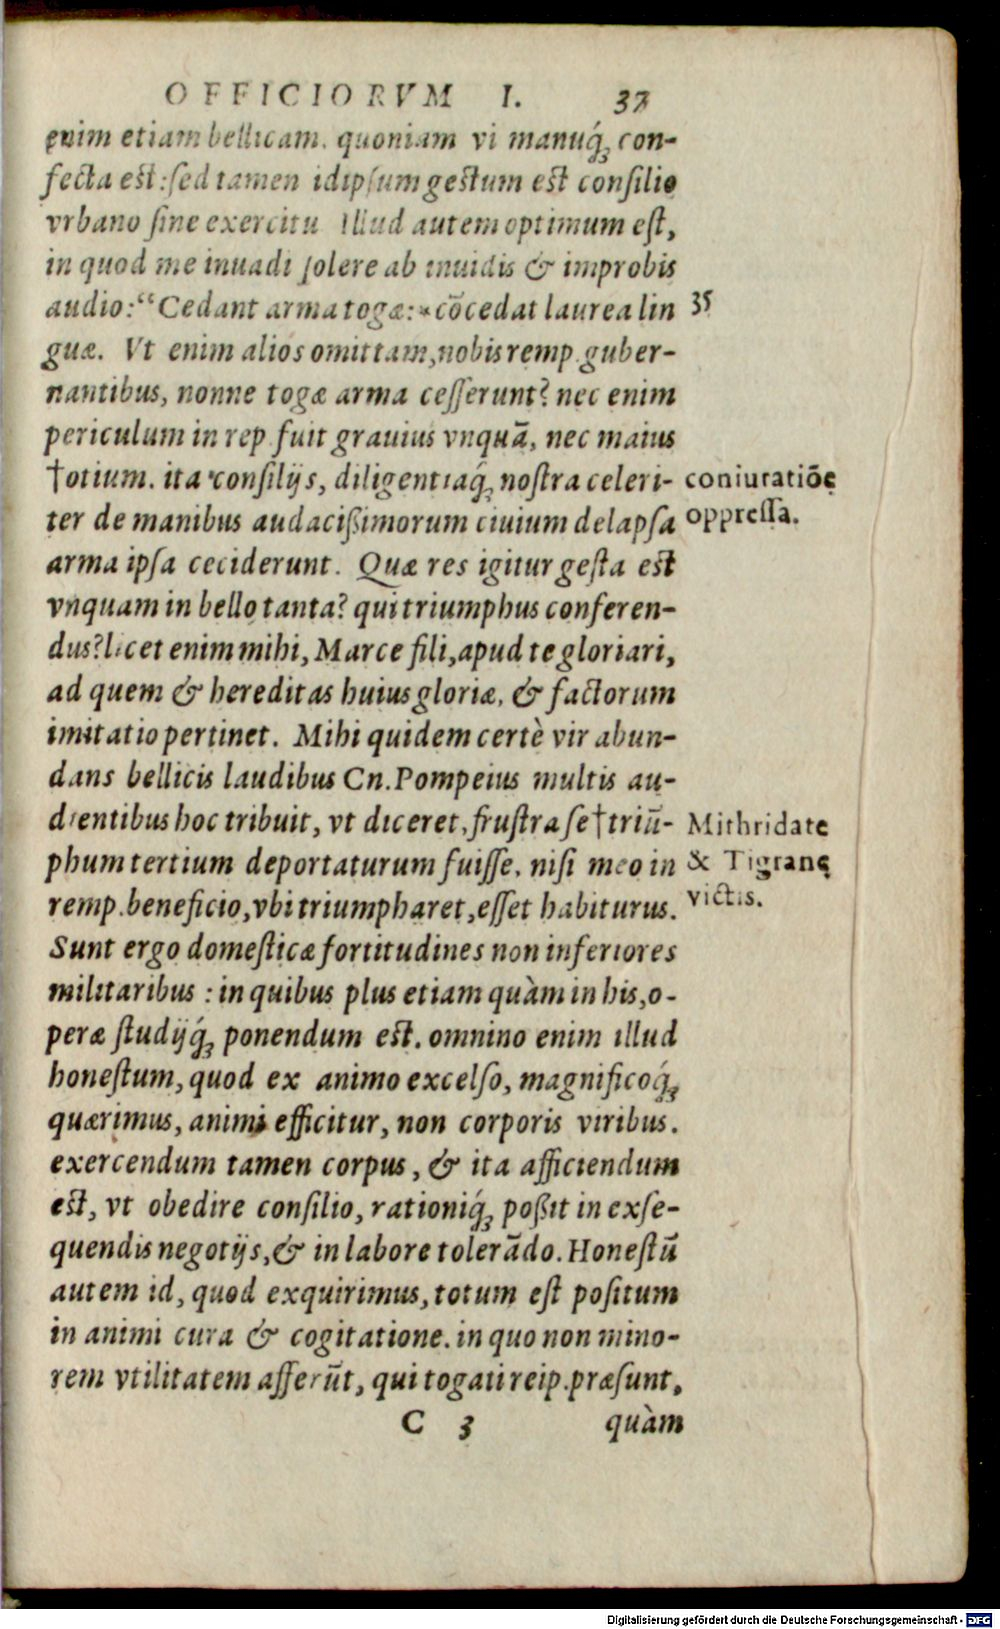 OFFICIORVM I. 37
enim etiam bellicam. quoniam vi manuq́; con-
fecta est: sed tamen idipsum gestum est consilio
vrbano sine exercitu. Illud autem optimum est,
in quod me inuadi solere ab inuidis & improbis
audio: “Cedant arma togæ: *cõcedat laurea lin 35
guæ. Vt enim alios omittam, nobis remp. guber-
nantibus, nonne togæ arma cesserunt? nec enim
periculum in rep. fuit grauius vnquã, nec maius
†otium. ita consilijs, diligentiaq́; nostra celeri-
coniuratiõe
ter de manibus audacißimorum ciuium delapsa
oppressa.
arma ipsa ceciderunt. Quæ res igitur gesta est
vnquam in bello tanta? qui triumphus conferen-
dus? licet enim mihi, Marce fili, apud te gloriari,
ad quem & hereditas huius gloriæ, & factorum
imitatio pertinet. Mihi quidem certè vir abun-
dans bellicis laudibus Cn. Pompeius multis au-
dientibus hoc tribuit, vt diceret, frustra se †triũ-
Mithridate
phum tertium deportaturum fuisse, nisi meo in
& Tigranę
remp. beneficio, vbi triumpharet, esset habiturus.
victis.
Sunt ergo domesticæ fortitudines non inferiores
militaribus: in quibus plus etiam quàm in his, o-
peræ studijq́; ponendum est. omnino enim illud
honestum, quod ex animo excelso, magnificoq́;
quærimus, animi efficitur, non corporis viribus.
exercendum tamen corpus, & ita afficiendum
est, vt obedire consilio, rationiq́; poßit in exse-
quendis negotijs, & in labore tolerãdo. Honestũ
autem id, quod exquirimus, totum est positum
in animi cura & cogitatione. in quo non mino-
rem vtilitatem afferũt, qui togati reip. præsunt,
C 3 quàm
Digitalisierung gefördert durch die Deutsche Forschungsgemeinschaft - DFG